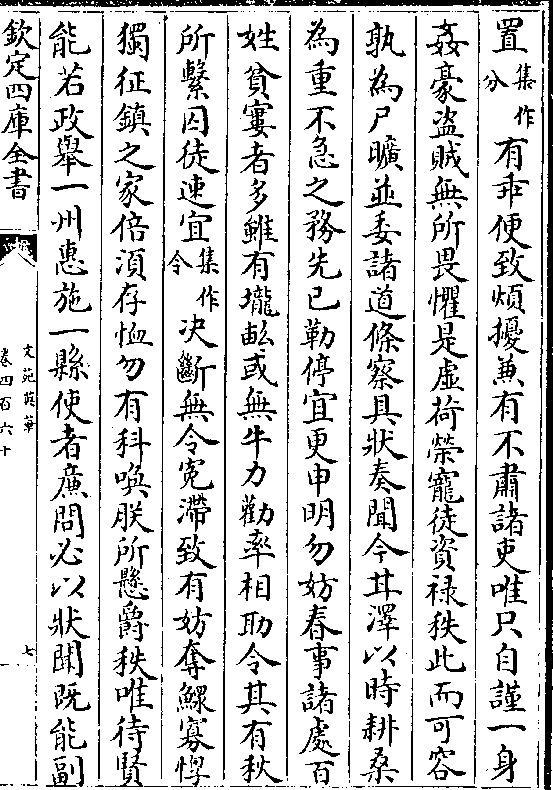 置集作分有乖便致煩擾兼有不肅諸吏唯只自謹一身
姦豪盗賊無所畏懼是虚荷榮寵徒資禄秩此而可容
孰為尸曠並委諸道條察具狀奏聞今甘澤以時耕桑
為重不急之務先已勒停宜更申明勿妨春事諸處百
姓貧窶者多雖有壠畝或無牛力勸率相助令其有秋
所繫囚徒速宜集作令決斷無令寃滯致有妨奪鰥寡惸
獨征鎮之家倍湏存恤勿有科喚朕所懸爵秩唯待賢
能若政舉一州惠施一縣使者廉問必以狀聞既能副
欽定四庫全書
文苑英華
卷四百六十
七